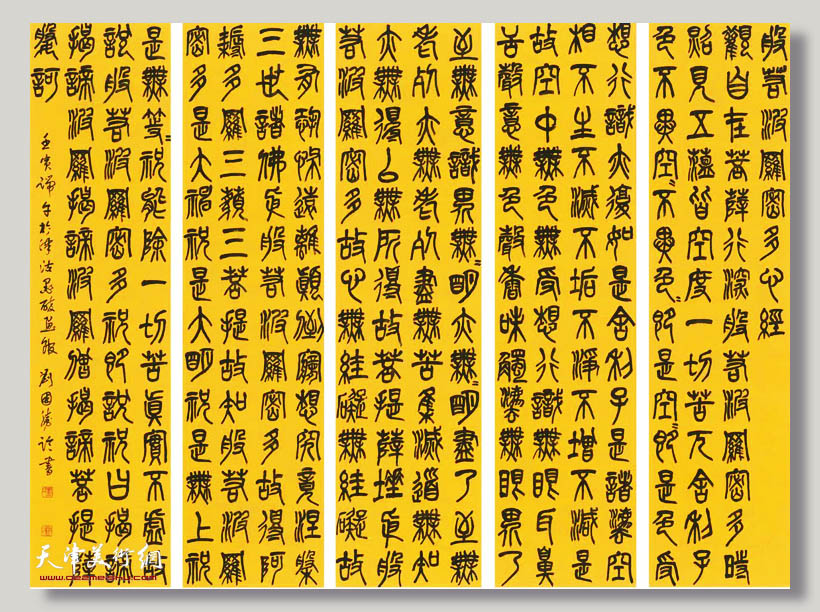 般若波羅密多心經
觀自在菩薩行深般若波羅密多時
照見五蘊皆空度一切苦厄舍利子
色不異空〻不異色〻即是空〻即是色受
想行識亦復如是舍利子是諸灋空
相不生不滅不垢不淨不增不減是
故空中無色無受想行識無眼耳鼻
舌身意無色聲香味觸灋無眼界乃
至無意識界無〻明亦無〻明盡乃至無
老死亦無老死盡無苦集滅道無知
亦無得以無所得故菩提薩埵依般
若波羅密多故心無罣礙無罣礙故
無有恐怖遠離顛倒夢想究竟涅槃
三世諸佛依般若波羅密多故得阿
耨多羅三藐三菩提故知般若波羅
密多是大神祝是大明祝是無上祝
是無等〻祝能除一切苦真實不虛故
說般若波羅密多祝即說祝曰揭諦
揭諦波羅揭諦波羅僧揭諦菩提薩
婆訶
壬寅端午於津沽 劉國 書
天津美術網